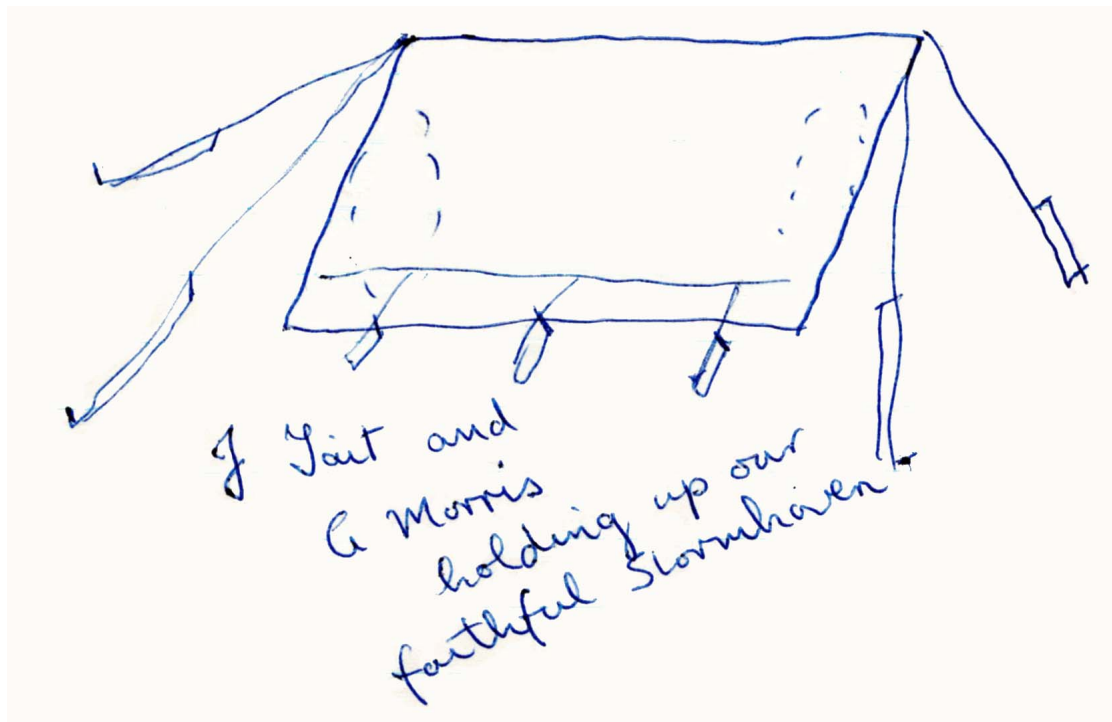 J Tait and
G Morris
holding up our
faithful Stormhaven